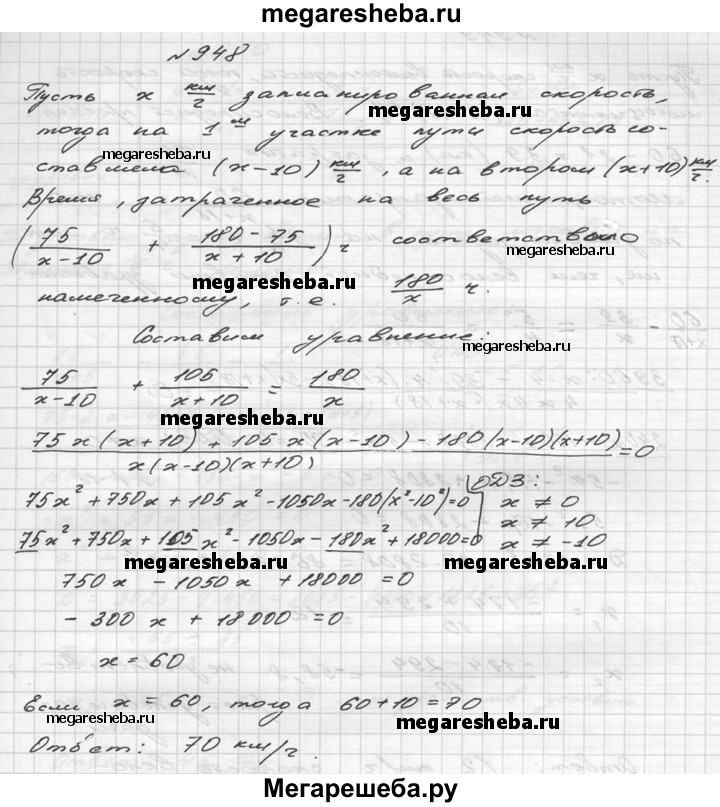 megaresheba.ru
№948
Пусть x км/г запланированная скорость,
megaresheba.ru
тогда на 1м участке пути скорость со-
megaresheba.ru
ставляла (x-10) км/г, а на втором (x+10) км/г.
Время, затраченное на весь путь
(75/(x-10) + (180-75)/(x+10)) ч соответствовало
megaresheba.ru
megaresheba.ru
намеченному, т.е. 180/x ч.
Составим уравнение:
megaresheba.ru
75/(x-10) + 105/(x+10) = 180/x
megaresheba.ru
(75x(x+10)+105x(x-10)-180(x-10)(x+10))/(x(x-10)(x+10)) =0
75x²+750x+105x²-1050x-180(x²-10²)=0
ОДЗ:
x≠0
x≠10
x≠-10
75x²+750x+105x²-1050x-180x²+18000=0
megaresheba.ru
megaresheba.ru
750x -1050x +18000=0
-300x+18000=0
x=60
Если x=60, тогда 60+10=70
megaresheba.ru
megaresheba.ru
Ответ: 70 км/г.
Мегарешеба.ру